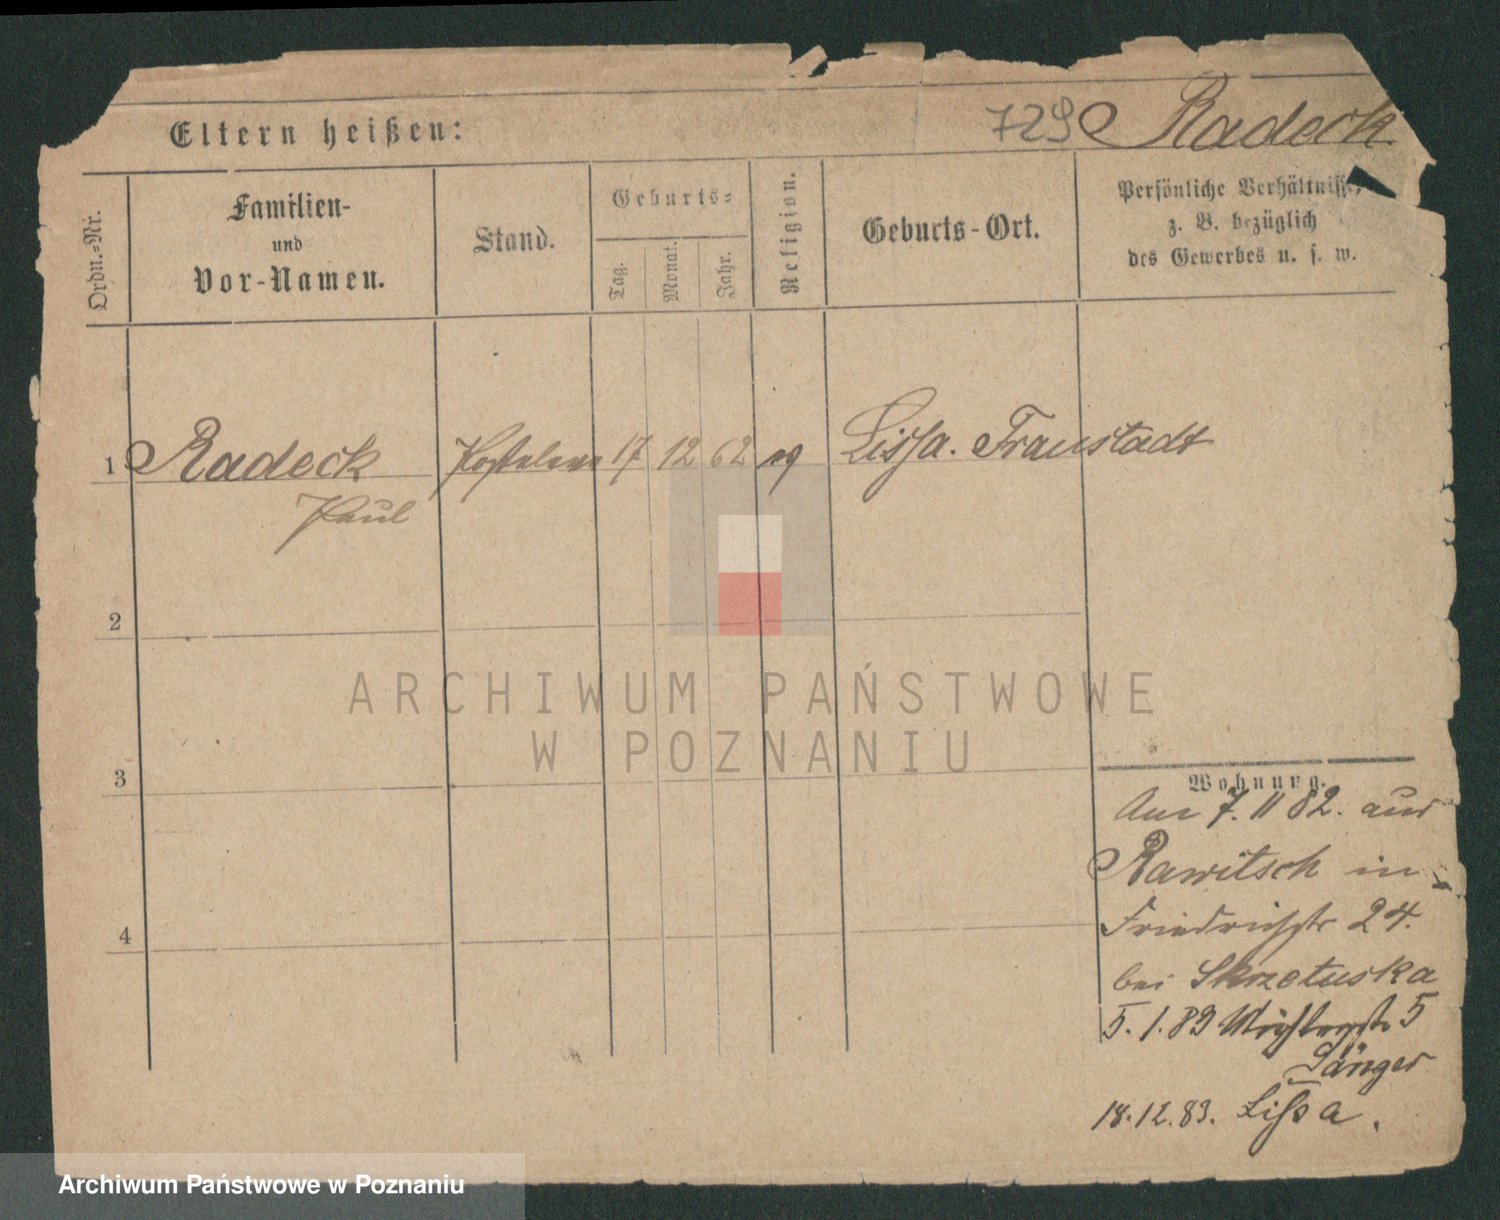 Eltern heißen:
729 Radeck.
Ordn.-Nr.
Familien-
und
Vor-Namen.
Stand.
Geburts-
Tag.
Monat.
Jahr.
Religion.
Geburts-Ort.
Persönliche Verhältnisse,
z. B. bezüglich
des Gewerbes u. s. w.
1 Radeck 17 12 62 Lissa. Fraustadt
Paul
2
3
4
Wohnung.
Am 7. 11 82. aus
Rawitsch in
Friedrichstr 24.
bei Skrzetuska
5. 1. 89 5
Sänger
18. 12. 89. Lissa.
ARCHIWUM PAŃSTWOWE
W POZNANIU
Archiwum Państwowe w Poznaniu